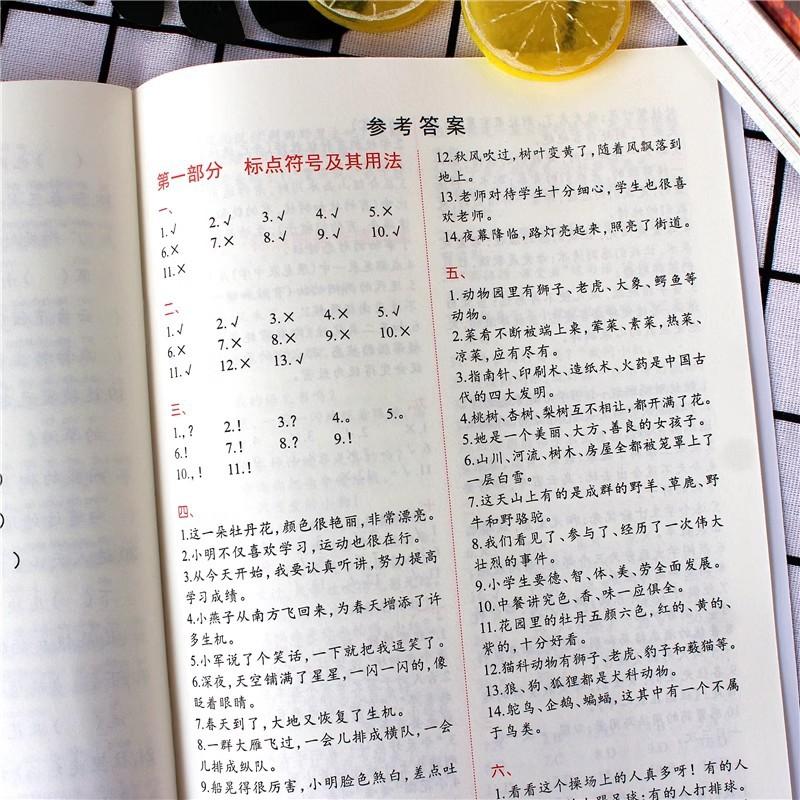 参考答案
第一部分 标点符号及其用法
一、
1.√ 2.√ 3.√ 4.√ 5.×
6.× 7.× 8.√ 9.√ 10.√
11.×
二、
1.√ 2.√ 3.× 4.× 5.√
6.× 7.× 8.× 9.× 10.×
11.√ 12.× 13.√
三、
1.，？ 2.！ 3.？ 4.。 5.。
6.！ 7.！ 8.？ 9.！
10.，！ 11.！
四、
1.这一朵牡丹花，颜色很艳丽，非常漂亮。
2.小明不仅喜欢学习，运动也很在行。
3.从今天开始，我要认真听讲，努力提高
学习成绩。
4.小燕子从南方飞回来，为春天增添了许
多生机。
5.小军说了个笑话，一下就把我逗笑了。
6.深夜，天空铺满了星星，一闪一闪的，像
眨着眼睛。
7.春天到了，大地又恢复了生机。
8.一群大雁飞过，一会儿排成横队，一会
儿排成纵队。
9.船晃得很厉害，小明脸色煞白，差点吐
12.秋风吹过，树叶变黄了，随着风飘落到
地上。
13.老师对待学生十分细心，学生也很喜
欢老师。
14.夜幕降临，路灯亮起来，照亮了街道。
五、
1.动物园里有狮子、老虎、大象、鳄鱼等
动物。
2.菜肴不断被端上桌，荤菜、素菜，热菜、
凉菜，应有尽有。
3.指南针、印刷术、造纸术、火药是中国古
代的四大发明。
4.桃树、杏树、梨树互不相让，都开满了花。
5.她是一个美丽、大方、善良的女孩子。
6.山川、河流、树木、房屋全都被笼罩上了
一层白雪。
7.这天山上有的是成群的野羊、草鹿、野
牛和野骆驼。
8.我们看见了、参与了、经历了一次伟大
壮烈的事件。
9.小学生要德、智、体、美、劳全面发展。
10.中餐讲究色、香、味一应俱全。
11.花园里的牡丹五颜六色，红的、黄的、
紫的，十分好看。
12.猫科动物有狮子、老虎、豹子和薮猫等。
13.狼、狗、狐狸都是犬科动物。
14.鸵鸟、企鹅、蝙蝠，这其中有一个不属
于鸟类。
六、
1.看看这个操场上的人真多呀！有的人
足球；有的人打排球。